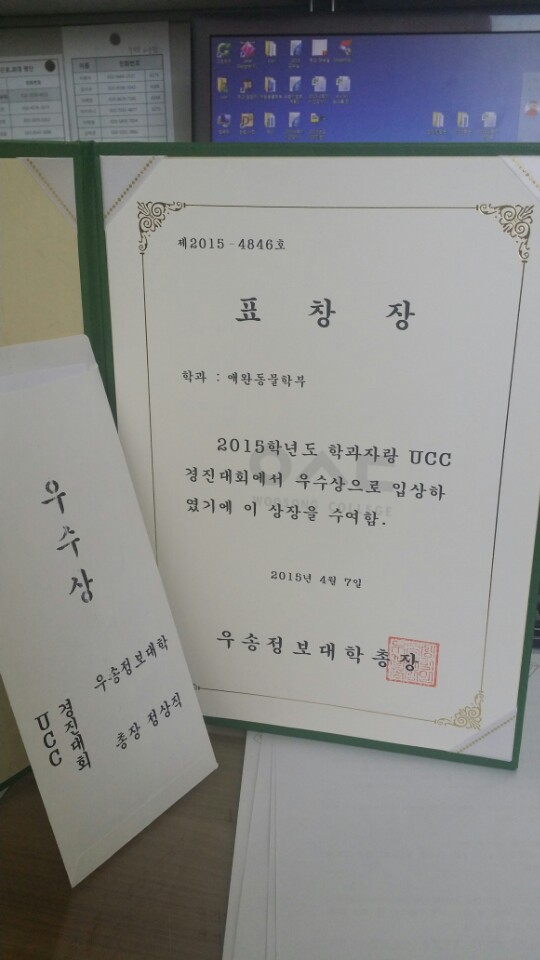 이름
전화번호
제2015-4846호
표 창 장
학과 : 애완동물학부
2015학년도 학과자랑 UCC
경진대회에서 우수상으로 입상하
였기에 이 상장을 수여함.
WOOSONG COLLEGE
2015년 4월 7일
우송정보대학총장
우수상
우송정보대학
총장 정상직
UCC
경진대회